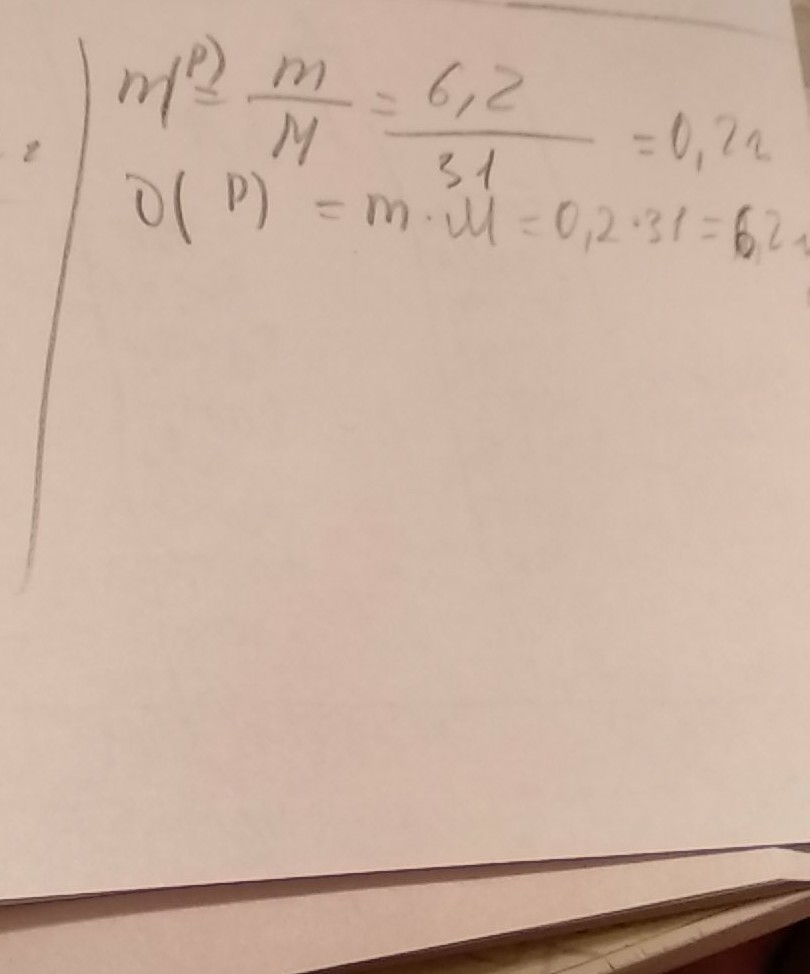 m(P) = m/M = 6,2/31 = 0,2г
υ(P) = m · M = 0,2 · 31 = 6,2г